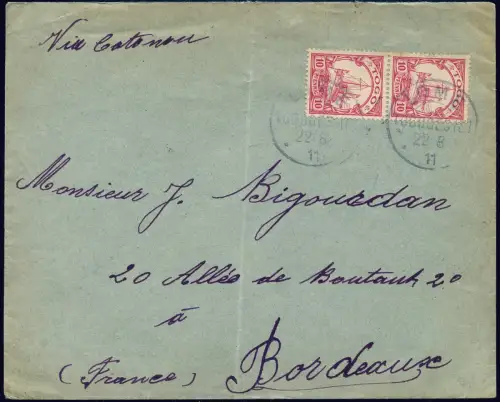 Via Cotonou
TOGO TOGO
10 10 10 10
22 8 22 8
11 11
Monsieur J. Bigourdan
20 Allée de Boutaut 20
à
Bordeaux
(France)